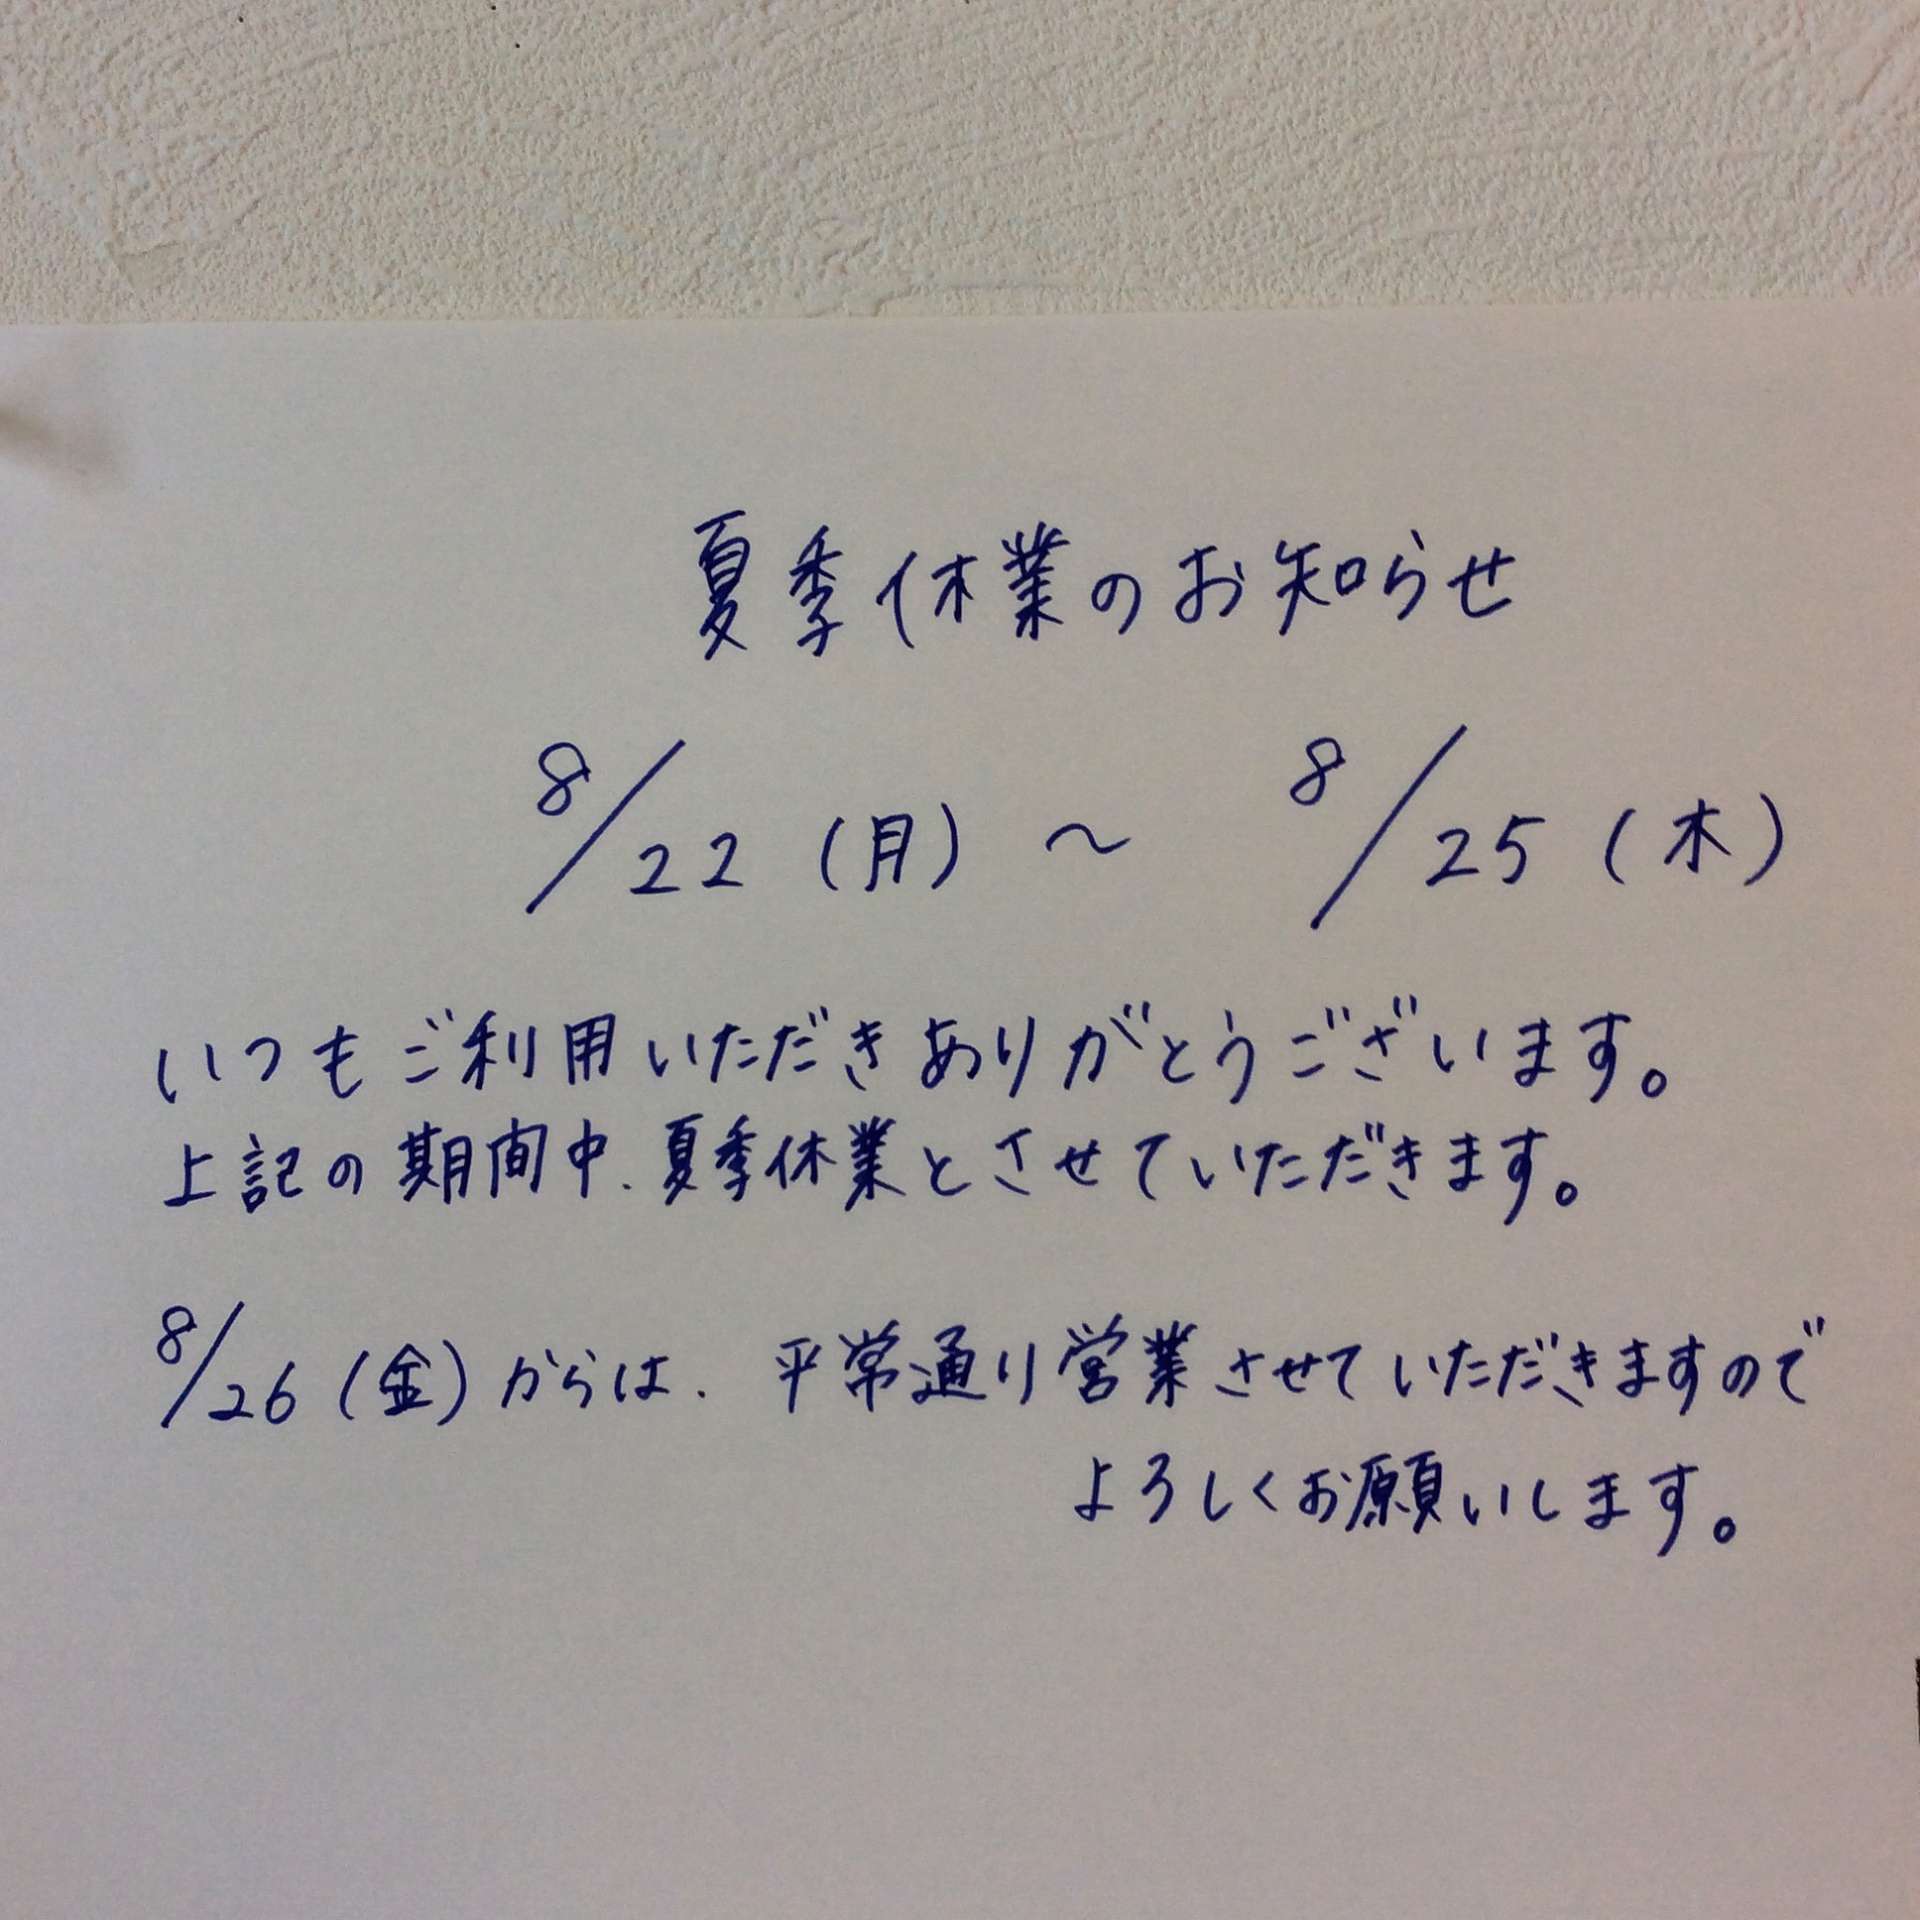 夏季休業のお知らせ
8/22(月)〜 8/25(木)
いつもご利用いただきありがとうございます。
上記の期間中、夏季休業とさせていただきます。
8/26(金)からは、平常通り営業させていただきますので
よろしくお願いします。